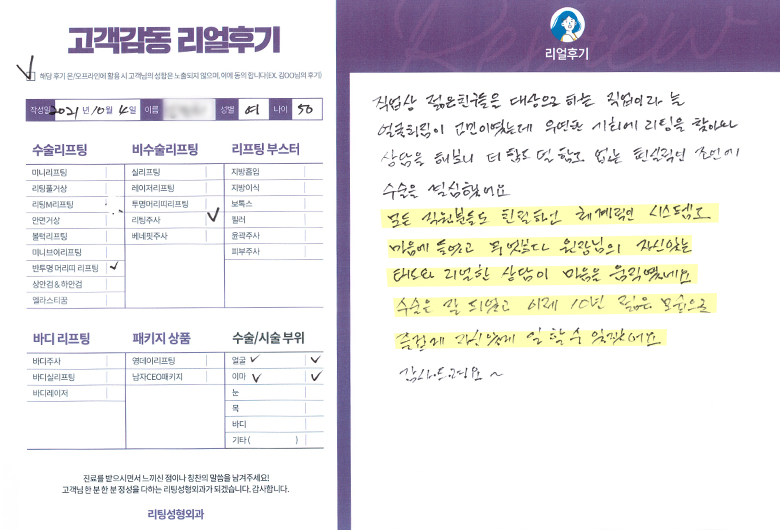 고객감동 리얼후기
해당 후기 온/오프라인에 활용 시 고객님의 성함은 노출되지 않으며, 이에 동의 합니다(EX. 김OO님의 후기)
작성일 2021 년 10 월 4 일 이름 성별 여 나이 50
수술리프팅
미니리프팅
리팅풀거상
리팅M리프팅
안면거상
볼턱리프팅
미니브이리프팅
반투명 머리띠 리프팅
상안검 & 하안검
엘라스티꿈
비수술리프팅
실리프팅
레이저리프팅
투명머리띠리프팅
리팅주사
베네핏주사
리프팅 부스터
지방흡입
지방이식
보톡스
필러
윤곽주사
피부주사
바디 리프팅
바디주사
바디실리프팅
바디레이저
패키지 상품
영데이리프팅
남자CEO패키지
수술/시술 부위
얼굴
이마
눈
목
바디
기타 ( )
진료를 받으시면서 느끼신 점이나 칭찬의 말씀을 남겨주세요!
고객님 한 분 한 분 정성을 다하는 리팅성형외과가 되겠습니다. 감사합니다.
리팅성형외과
Review
리얼후기
직업상 젊은친구들을 대상으로 하는 직업이라 늘
얼굴처짐이 고민이였는데 우연한 기회에 리팅을 찾아와
상담을 해보니 더 할것도 덜 할것도 없는 현실적인 조언에
수술을 결심했어요
모든 직원분들도 친절하고 체계적인 시스템도
마음에 들었고 무엇보다 원장님의 자신있는
태도와 리얼한 상담이 마음을 움직였네요
수술은 잘 되었고 이제 10년 젊은 모습으로
즐겁게 자신있게 일 할 수 있겠어요
감사드려요~